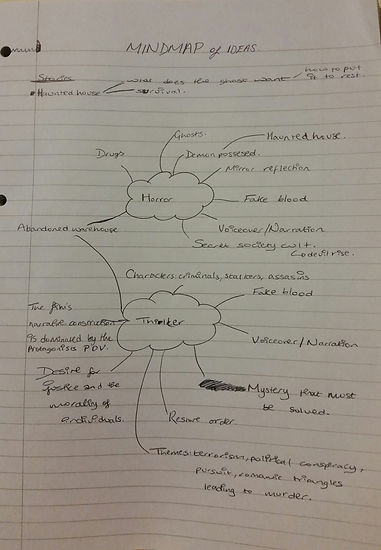 MINDMAP of IDEAS.
Stories
what does the ghost want
how to put
it to rest.
Haunted house
survival.
Ghosts.
Haunted house.
Drugs
Demon possesed.
Mirror reflection
Horror
Fake blood
Abandoned warehouse
Voiceover/Narration
Secret society cult.
devil rise.
Characters: criminals, stalkers, assasins
Fake blood
The film's
narrative construction
is dominated by the
Protagonists P.O.V.
Voiceover/Narration
Desire for
justice and the
morality of
individuals.
Mystery that must
be solved.
Restore order
Themes: terrorism, political conspiracy,
pursuit, romantic triangles
leading to murder.